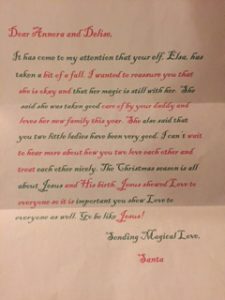 Dear Annera and Delise,
It has come to my attention that your elf, Elsa, has
taken a bit of a fall. I wanted to reassure you that
she is okay and that her magic is still with her. She
said she was taken good care of by your daddy and
loves her new family this year. She also said that
you two little ladies have been very good. I can t wait
to hear more about how you two love each other and
treat each other nicely. The Christmas season is all
about Jesus and His birth. Jesus showed Love to
everyone so it is important you show Love to
everyone as well. Go be like Jesus!
Sending Magical Love,
Santa